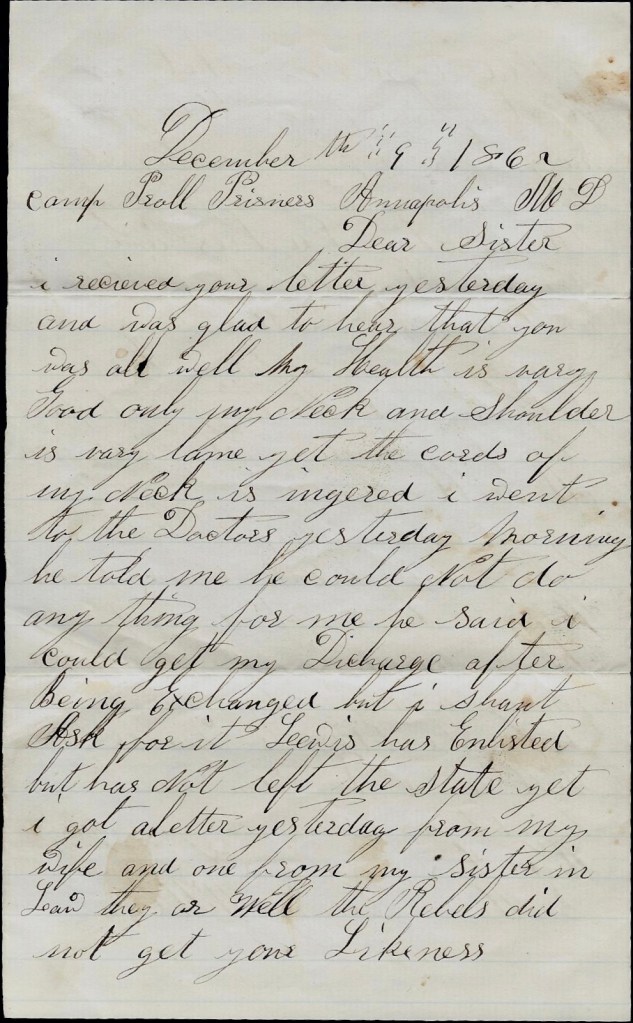 December th 9 1862
camp Proll Prisners Annapolis Md
Dear Sister
i recieved your letter yesterday
and was glad to hear that you
was all well My Health is vary
Good only my Neck and Shoulder
is vary lame yet the cords of
my Neck is ingered i went
to the Doctors yesterday Morning
he told me he could Not do
any thing for me he said i
could get my Dicharge after
Being Exchanged but i shant
Ask for it Leewis has Enlisted
but has Not left the State yet
i got aletter yesterday from my
wife and one from my Sister in
Law they ar Well the Rebels did
not get your Likeness